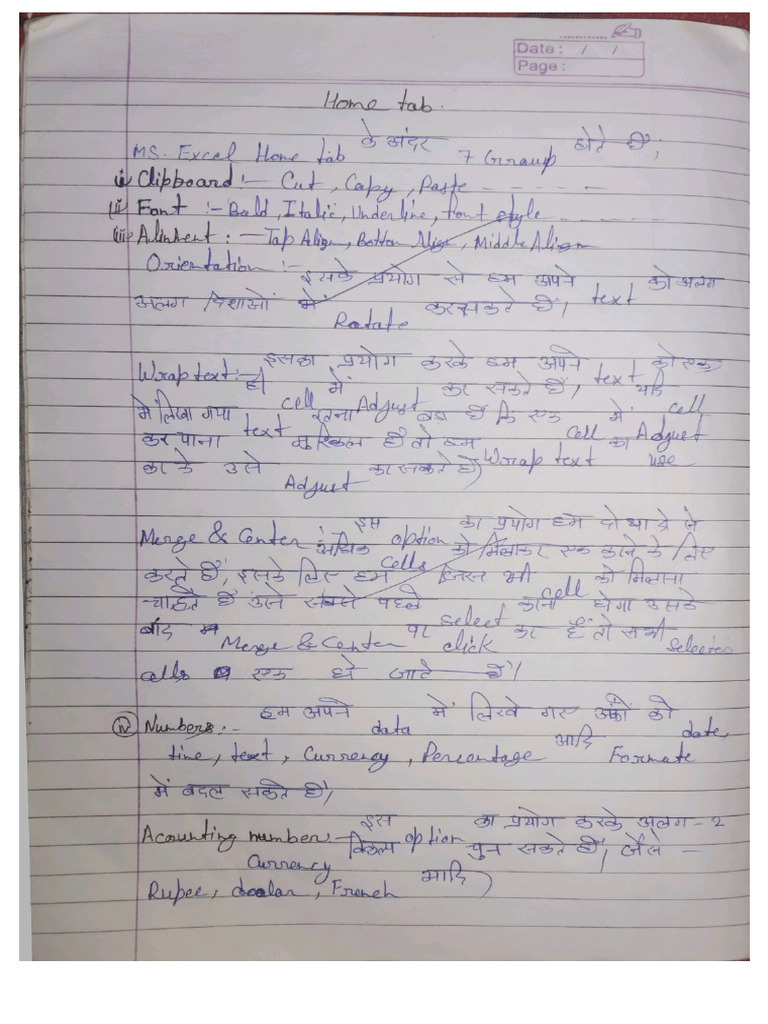 Date : / /
Page :
Home tab.
MS. Excel Home tab के अंदर 7 Group होते हैं,
(i) Clipboard :- Cut, Copy, Paste - - - - -
(ii) Font :- Bold, Italic, Underline, font style - - - - -
(iii) Alinhent : - Tap Align, Bottom Align, Middle Align
Orientation :- इसके प्रयोग से हम अपने text को अलग
अलग दिशाओं में Rotate कर सकते हैं,
Wrap text :- इसका प्रयोग करके हम अपने text को एक
ही cell में Adjust कर सकते हैं, यदि cell
में लिखा गया text इतना बड़ा हैं कि एक cell में Adjust
कर पाना मुश्किल है तो हम Wrap text का use
करके उसे Adjust कर सकते है)
Merge & Center : इस option का प्रयोग हम दो या दो से
अधिक cells को मिलाकर एक करने के लिए
करते हैं, इसके लिए हम जिस भी cell को मिलाना
चाहते हैं उसे सबसे पहले select करना होगा उसके
बाद Merge & Center पर click कर हैं तो सभी selected
cells एक हो जाते है।
(iv) Numbers :- हम अपने data में लिखे गए अंकों को date,
time, text, Currency, Percentage आदि Formate
में बदल सकते हैं,
Acounting number :- इस option का प्रयोग करके अलग-२
Currency चुन सकते हैं, जैसे -
Rupee, doolar, French आदि)